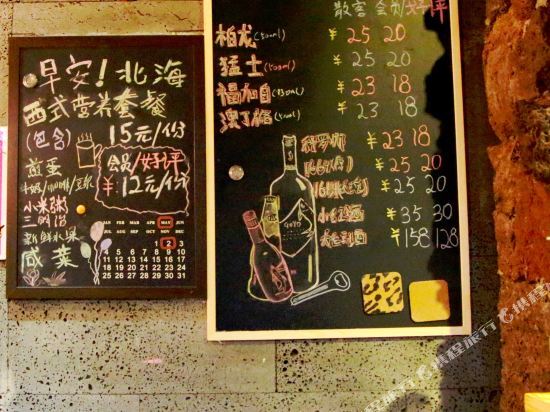 早安！北海
西式营养套餐
(包含) 15元/份
煎蛋
会员/好评
¥：12元/份
牛奶/咖啡/豆浆
小米粥
三明治
新鲜水果
咸菜
JAN FEB MAR APR MAY JUN
JUL AUG SEP OCT NOV DEC
1 2 3
4 5 6 7 8 9 10
11 12 13 14 15 16 17
18 19 20 21 22 23 24
25 26 27 28 29 30 31
散客 会员/好评
柏龙(500ml) ¥25 20
猛士(500ml) ¥25 20
福加自(450ml) ¥23 18
(500ml) ¥23 18
¥23 18
1664 ¥25 20
1664 ¥25 20
小红酒 ¥35 30
¥158 128
携程旅行